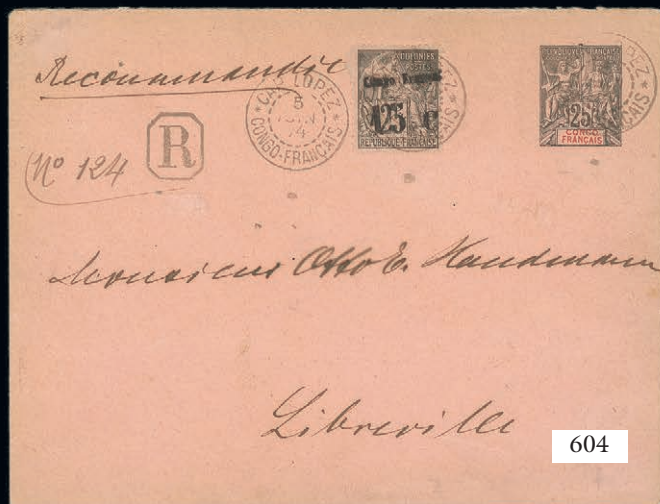 Recommandée
CAP LOPEZ
5
JUIN
94
CONGO-FRANÇAIS
COLONIES
POSTES
Congo Français
25 c
REPUBLIQUE FRANÇAISE
25
CONGO
FRANÇAIS
R
No 124
Monsieur Otto E. Handmann
Libreville
604